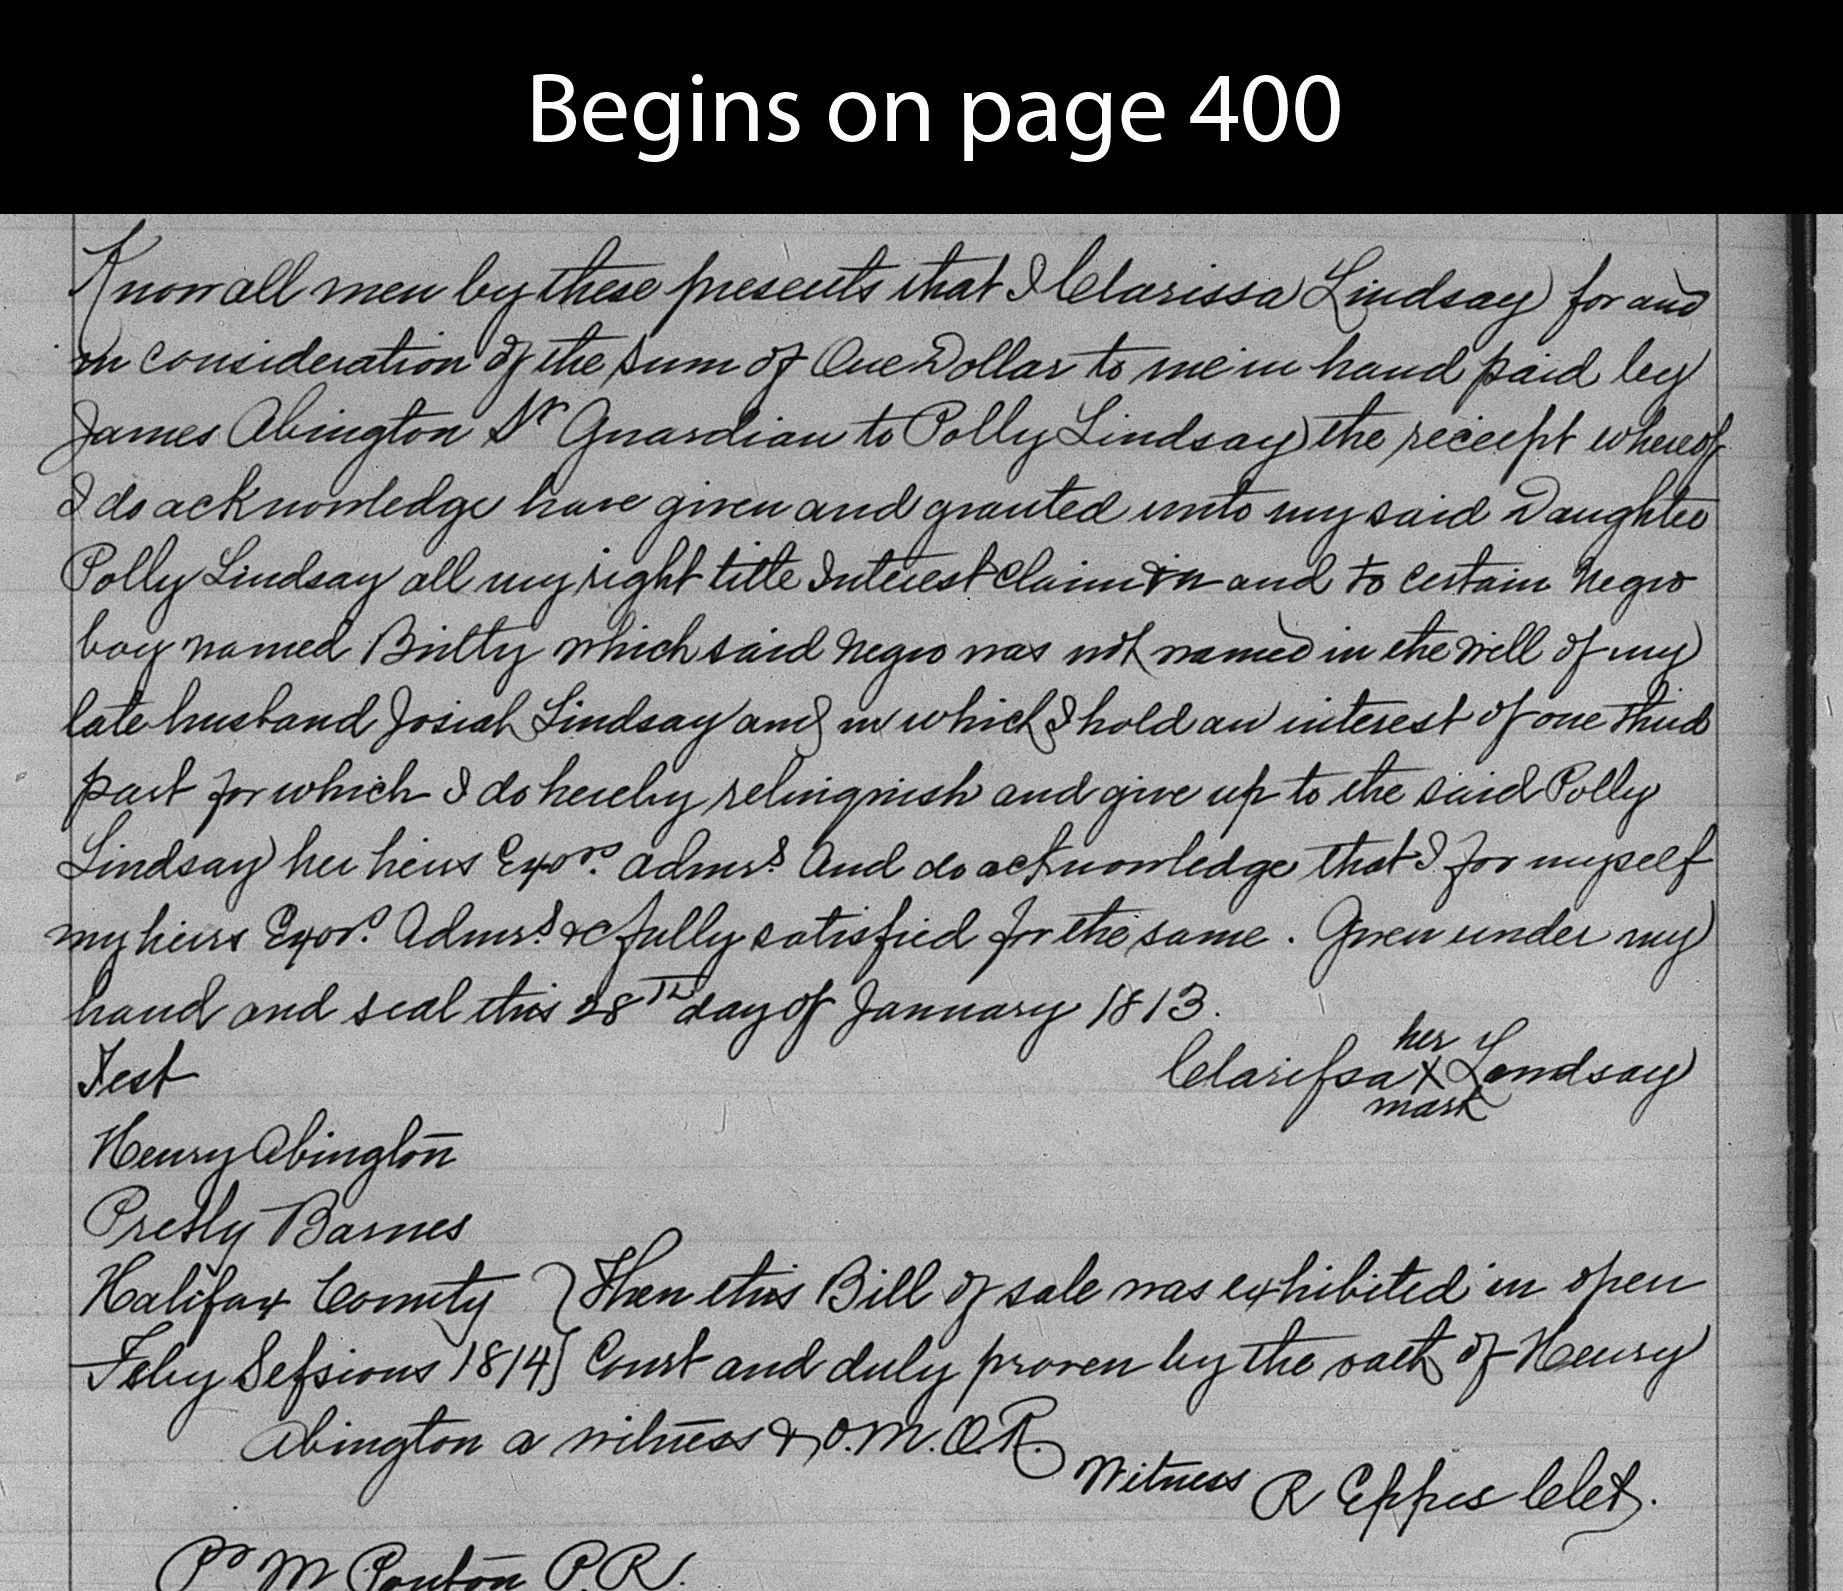 Begins on page 400
Know all men by these presents that I Clarissa Lindsay for and
in consideration of the sum of One Dollar to me in hand paid by
James Abington Sr Guardian to Polly Lindsay the receipt whereof
I do acknowledge have given and granted unto my said Daughter
Polly Lindsay all my right title Interest claim in and to certain Negro
boy named which said Negro was not named in the will of my
late husband Josiah Lindsay and in which I hold an interest of one third
part for which I do hereby relinquish and give up to the said Polly
Lindsay her heirs Exors. admrs. And do acknowledge that I for myself
my heirs Exors. Admrs. &c fully satisfied for the same. Given under my
hand and seal this 28th day of January 1813.
Test
her
Clarissa X Lindsay
mark
Henry Abington
Barnes
Halifax County } Then this Bill of sale was exhibited in open
Feby Sessions 1814 } Court and duly proven by the oath of Henry
Abington a witness & O.M.O.R.
Witness R Eppes Clet.
M Ponton P.R.